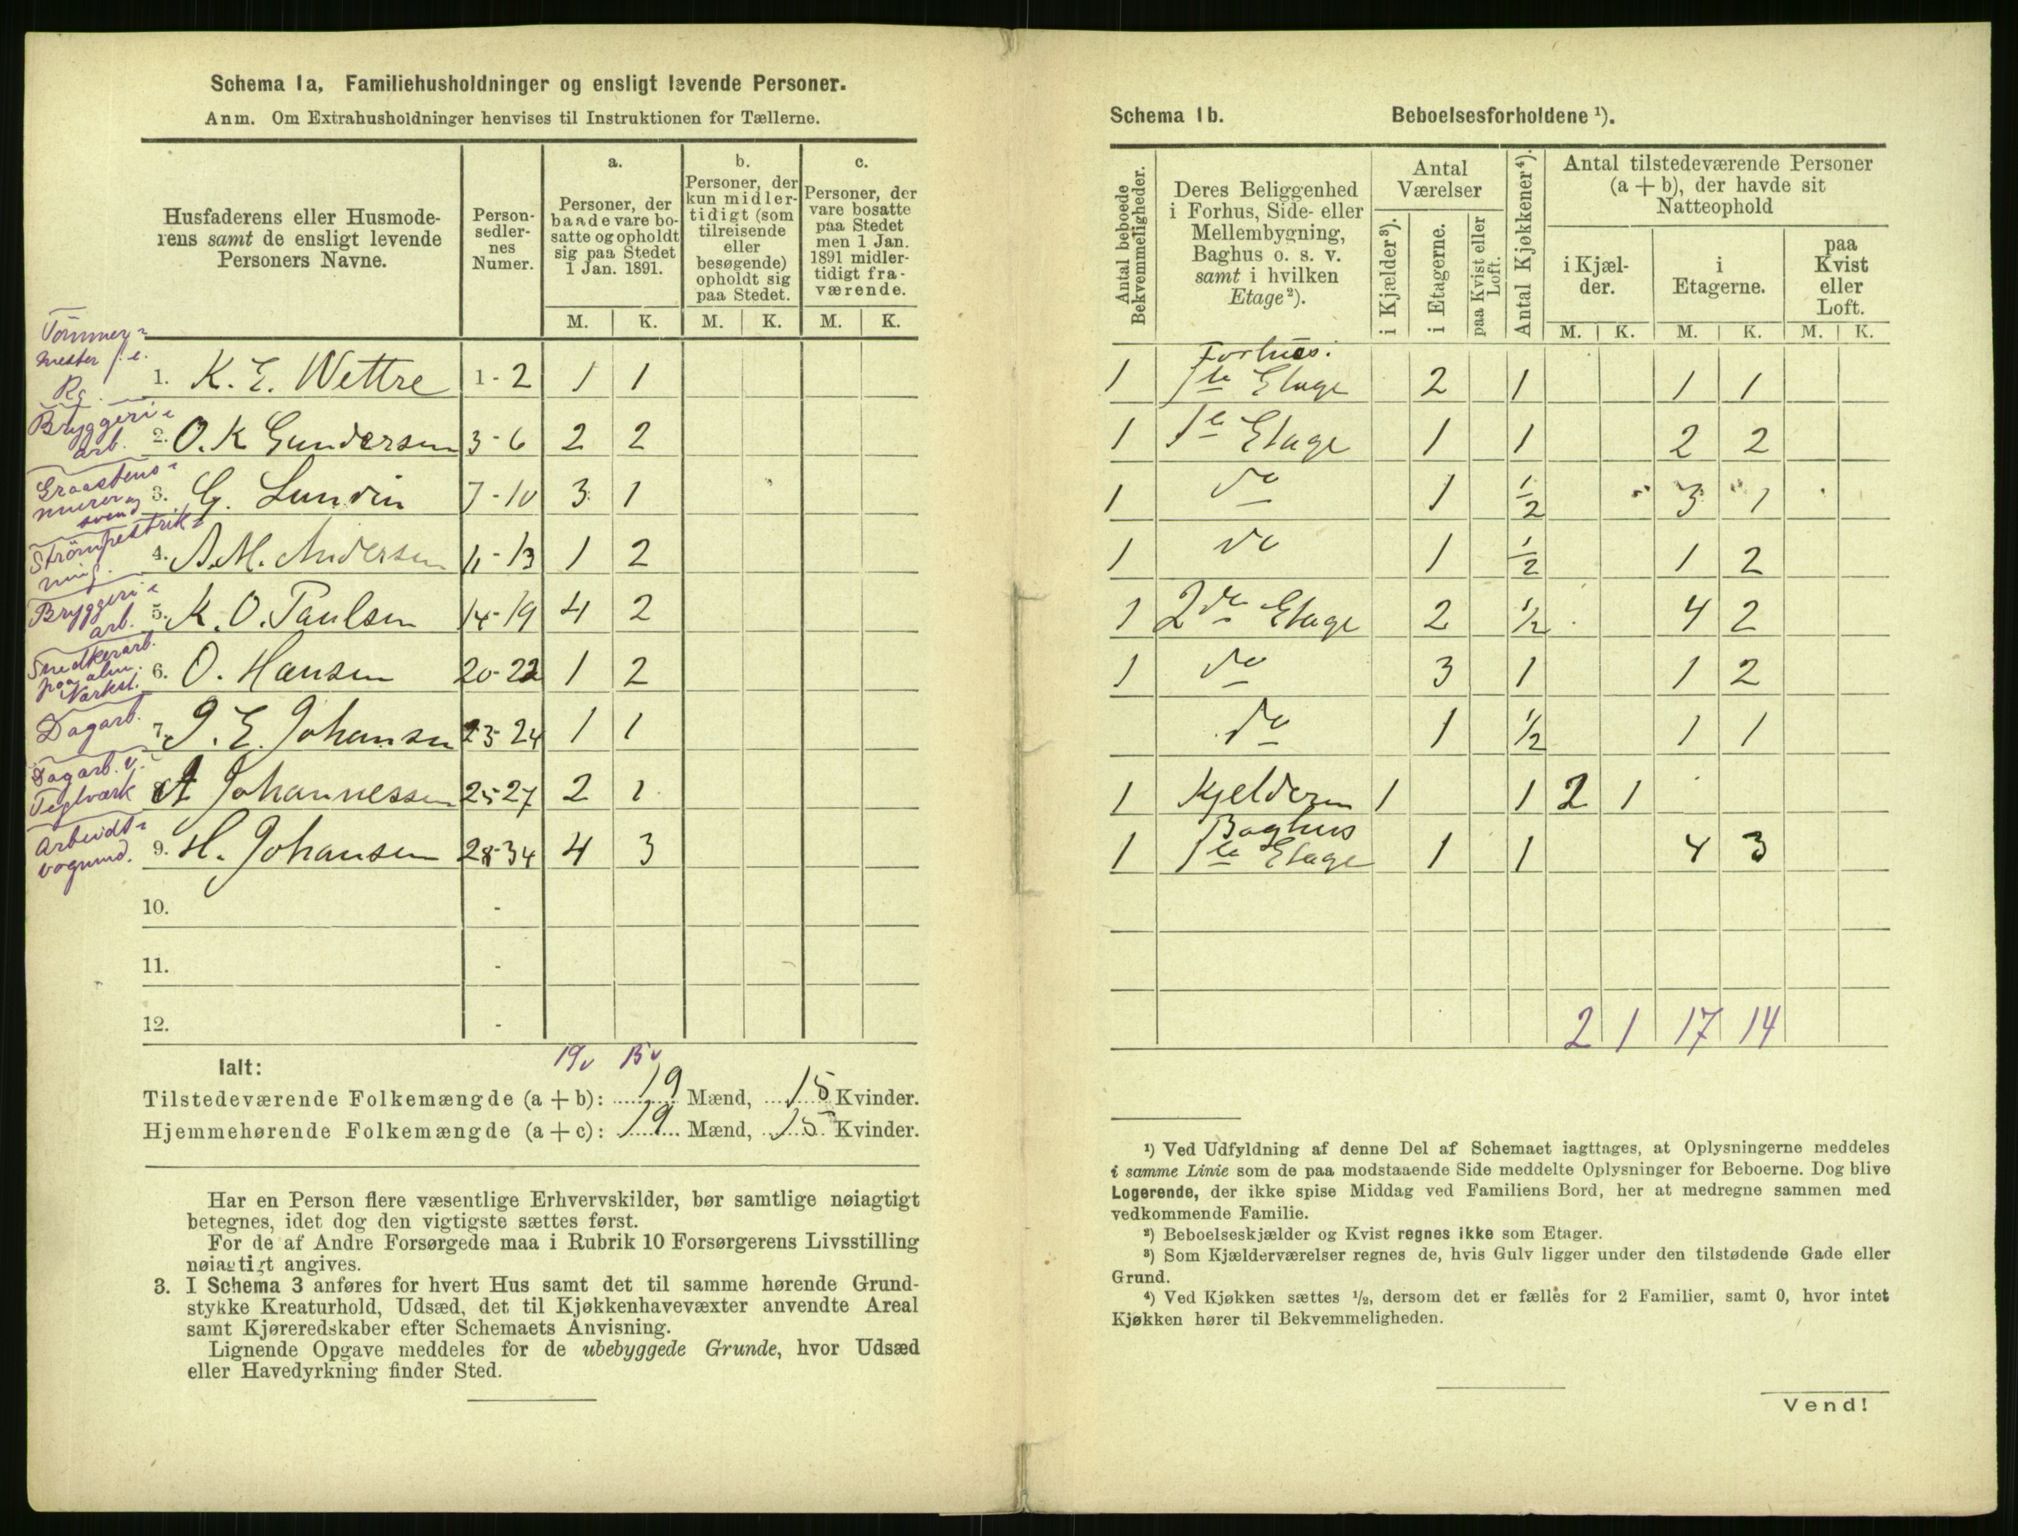 Schema 1a, Familiehusholdninger og ensligt levende Personer.
Anm. Om Extrahusholdninger henvises til Instruktionen for Tællerne.
Husfaderens eller Husmode-
rens samt de ensligt levende
Personers Navne.
Person-
sedler-
nes
Numer.
a.
Personer, der
baade vare bo-
satte og opholdt
sig paa Stedet
1 Jan. 1891.
b.
Personer, der
kun midler-
tidigt (som
tilreisende
eller
besøgende)
opholdt sig
paa Stedet.
c.
Personer, der
vare bosatte
paa Stedet
men 1 Jan.
1891 midler-
tidigt fra-
værende.
M. K. M. K. M. K.
Tömmer-
mester f. e.
Rg.
1. K. E. Wettre 1-2 1 1
Bryggeri-
arb.
2. O. K Gundersen 3-6 2 2
Graastens-
murer
svend
3. G. Lundin 7-10 3 1
Strömpestrik-
ning.
4. A. M. Andersen 11-13 1 2
Bryggeri-
arb.
5. K. O. Paulsen 14-19 4 2
Snedkerarb.
paa alm.
Værkst.
6. O. Hansen 20-22 1 2
Dagarb.
7. J. E. Johansen 23-24 1 1
Dagarb. v.
Teglværk
8. A Johannessen 25-27 2 1
Arbeidt-
vogmd.
9. H. Johansen 28-34 4 3
10. -
11. -
12. -
Ialt: 19v 15v
Tilstedeværende Folkemængde (a + b): 19 Mænd, 15 Kvinder.
Hjemmehørende Folkemængde (a + c): 19 Mænd, 15 Kvinder.
Har en Person flere væsentlige Erhvervskilder, bør samtlige nøiagtigt
betegnes, idet dog den vigtigste sættes først.
For de af Andre Forsørgede maa i Rubrik 10 Forsørgerens Livsstilling
nøiagtigt angives.
3. I Schema 3 anføres for hvert Hus samt det til samme hørende Grund-
stykke Kreaturhold, Udsæd, det til Kjøkkenhavevæxter anvendte Areal
samt Kjøreredskaber efter Schemaets Anvisning.
Lignende Opgave meddeles for de ubebyggede Grunde, hvor Udsæd
eller Havedyrkning finder Sted.
Schema 1b. Beboelsesforholdene ¹).
Antal beboede
Bekvemmeligheder.
Deres Beliggenhed
i Forhus, Side- eller
Mellembygning,
Baghus o. s. v.
samt i hvilken
Etage²).
Antal
Værelser
i Kjælder³).
i Etagerne.
paa Kvist eller
Loft.
Antal Kjøkkener⁴).
Antal tilstedeværende Personer
(a + b), der havde sit
Natteophold
i Kjæl-
der.
i
Etagerne.
paa
Kvist
eller
Loft.
M. K. M. K. M. K.
Forhus.
1 1ste Etage 2 1 1 1
1 1e Etage 1 1 2 2
1 do 1 1/2 3 1
1 do 1 1/2 1 2
1 2den Etage 2 1/2 4 2
1 do 3 1 1 2
do 1 1/2 1 1
1 Kjelderen 1 1 2 1
Baghus
1 1ste Etage 1 1 4 3
2 1 17 14
¹) Ved Udfyldning af denne Del af Schemaet iagttages, at Oplysningerne meddeles
i samme Linie som de paa modstaaende Side meddelte Oplysninger for Beboerne. Dog blive
Logerende, der ikke spise Middag ved Familiens Bord, her at medregne sammen med
vedkommende Familie.
²) Beboelseskjælder og Kvist regnes ikke som Etager.
³) Som Kjælderværelser regnes de, hvis Gulv ligger under den tilstødende Gade eller
Grund.
⁴) Ved Kjøkken sættes ½, dersom det er fælles for 2 Familier, samt 0, hvor intet
Kjøkken hører til Bekvemmeligheden.
Vend!